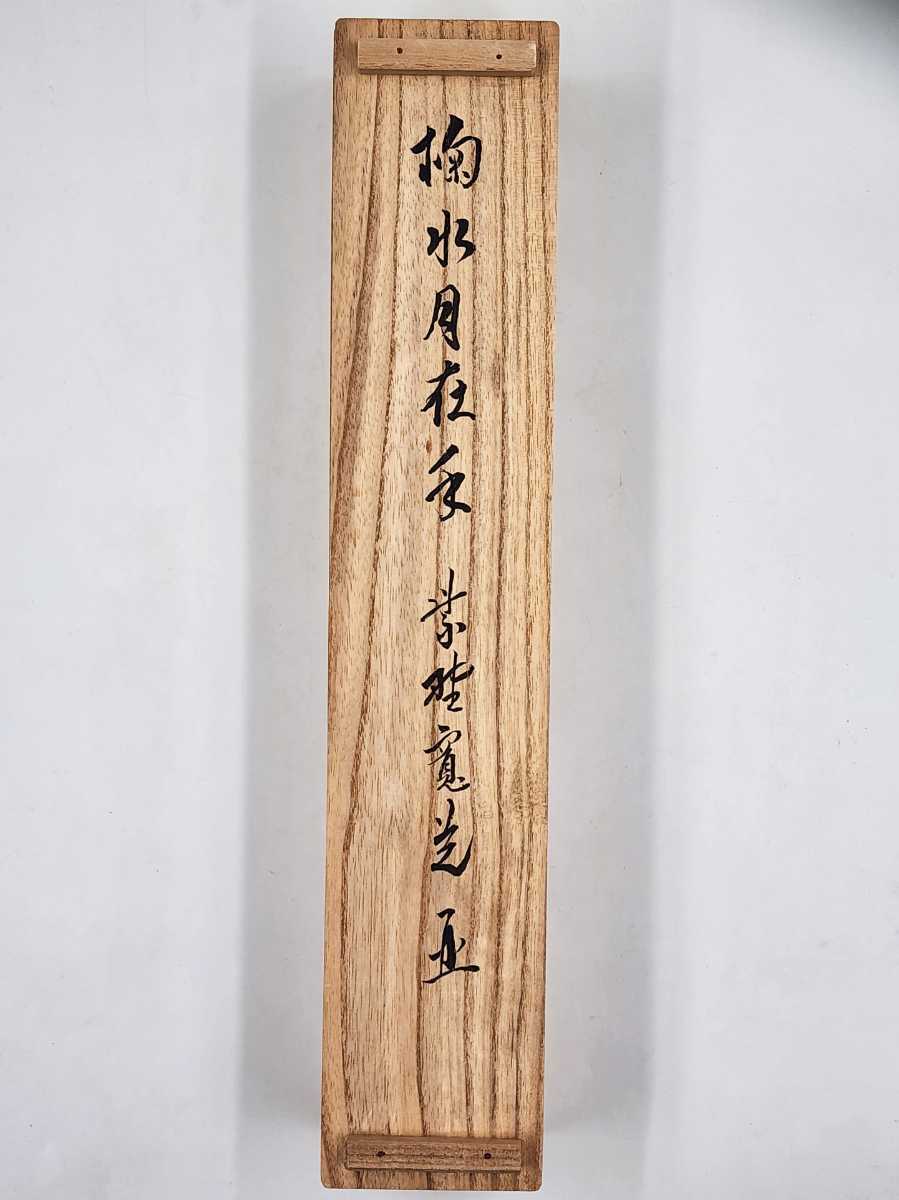 掬水月在手 紫野寛道